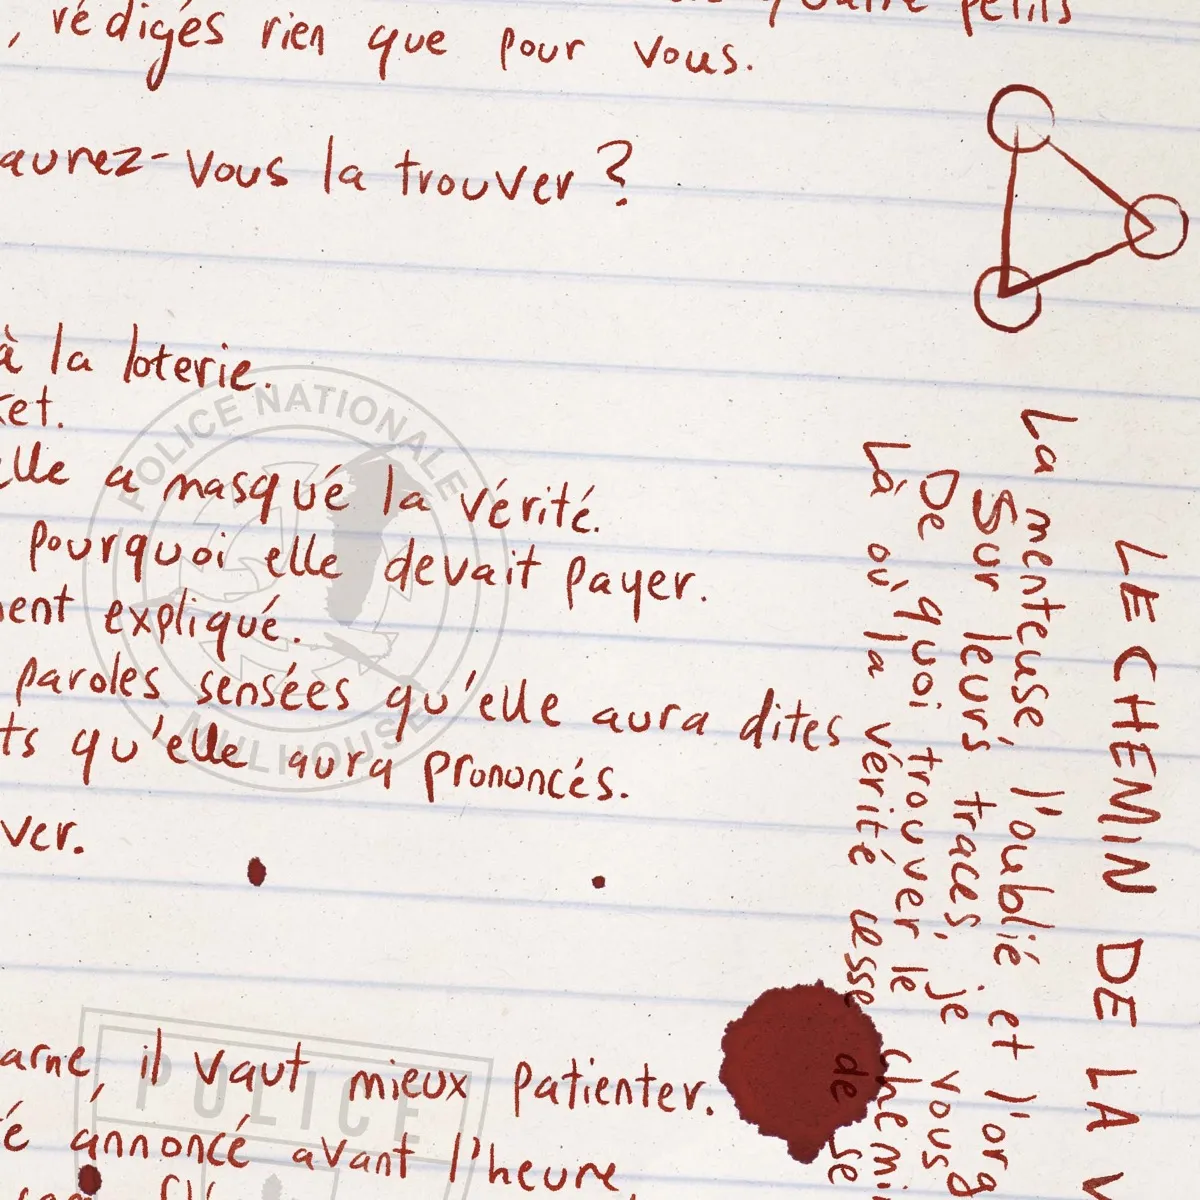 quatre petits
, rédigés rien que pour vous.
aurez-vous la trouver ?
à la loterie.
ket.
elle a masqué la vérité.
pourquoi elle devait payer.
ment expliqué.
paroles sensées qu'elle aura dites
ts qu'elle aura prononcés.
ver.
arne, il vaut mieux patienter.
té annoncé avant l'heure,
LE CHEMIN DE LA V
La menteuse, l'oublié et l'org
Sur leurs traces, je vous
De quoi trouver le chemi
Là où la vérité cesse de se
POLICE NATIONALE
MULHOUSE
POLICE